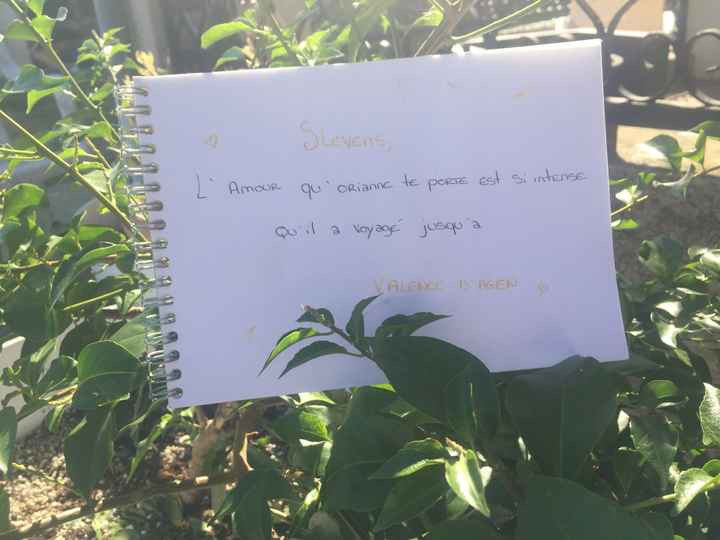 Slevens,
L'Amour qu'orianne te porte est si intense
Qu'il a voyagé jusqu'a
VALENCE D'AGEN